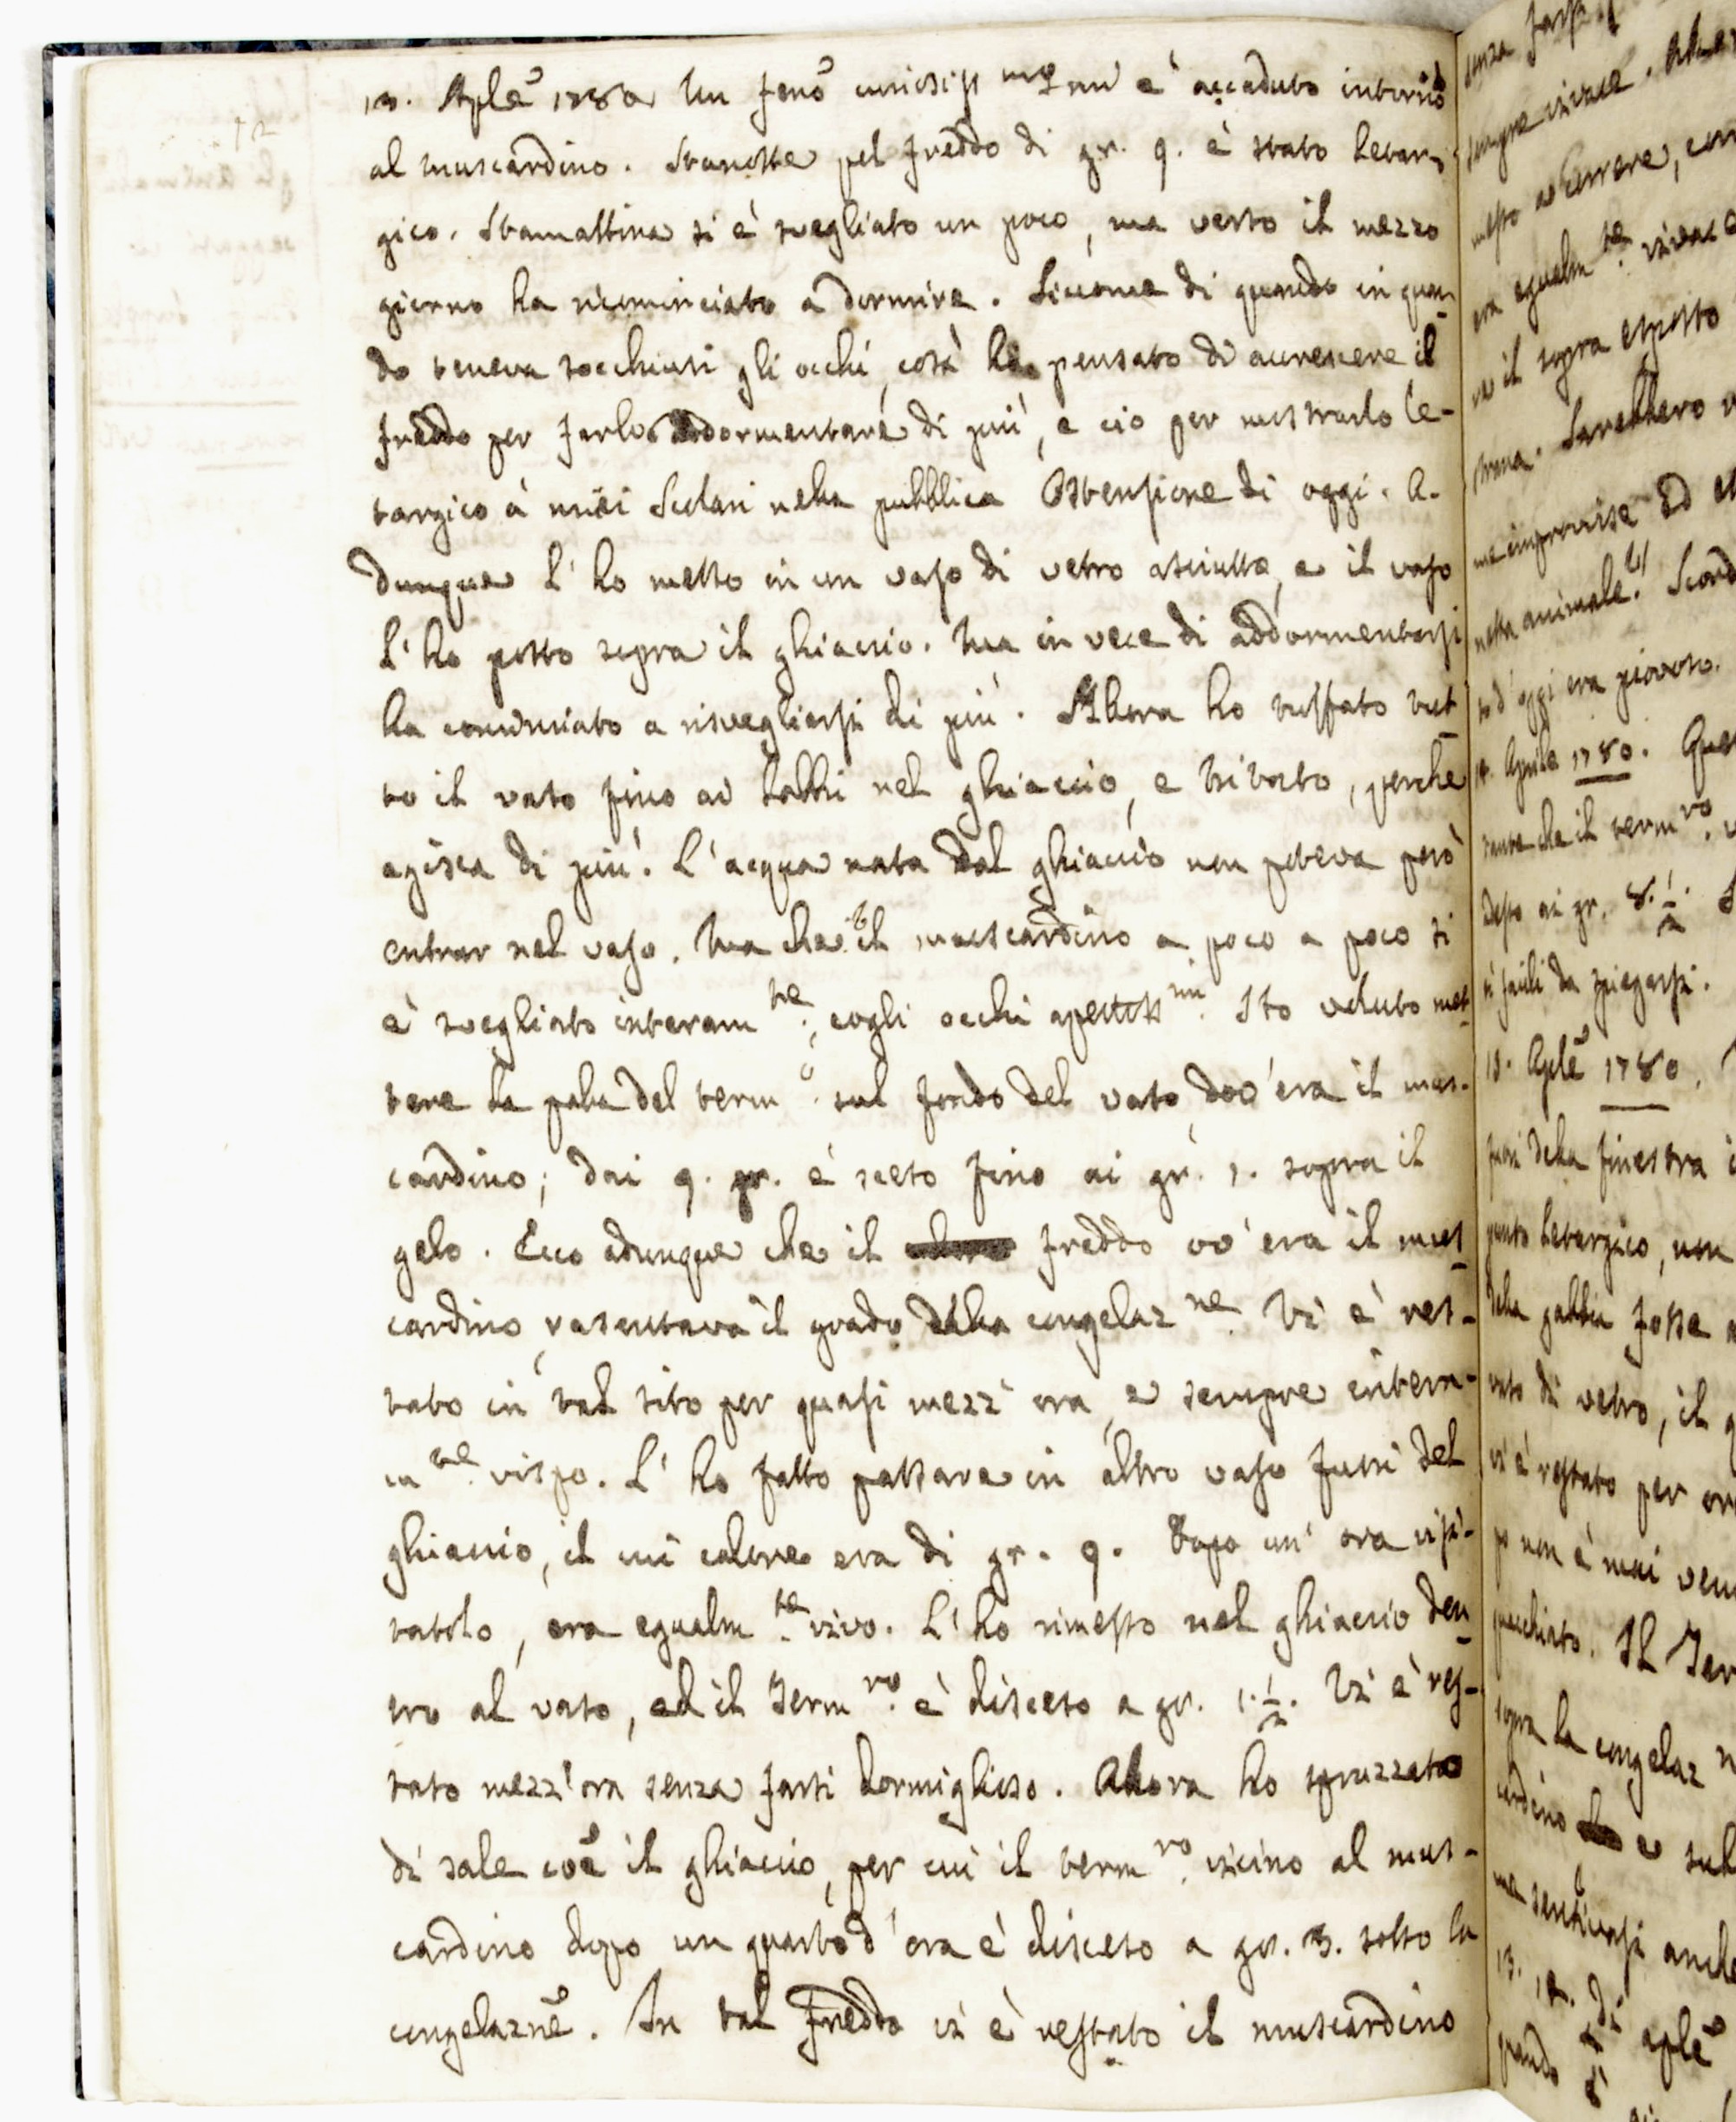 13. Aplẽ 1780. Un fenõ curiosiss mo mi è accaduto intorno
al muscardino. Stanotte pel freddo di gr. 9. è stato letar-
gico. Stamattina si è svegliato un poco, ma verso il mezzo
giorno ha ricominciato a dormire. Siccome di quando in quan-
do teneva socchiusi gli occhi, così ho pensato di accrescere il
freddo per farlo addormentare di più, e ciò per mostrarlo le-
targico a' miei Scolari nella pubblica Ostensione di oggi. A-
dunque l'ho messo in un vaso di vetro asciutto, e il vaso
l'ho posto sopra il ghiaccio. Ma in vece di addormentarsi
ha cominciato a risvegliarsi di più. Allora ho tuffato tut-
to il vaso fino ai labbri nel ghiaccio, e tritato, perchè
agisca di più. L'acqua nata dal ghiaccio non poteva però
entrar nel vaso. Ma che? il muscardino a poco a poco si
è svegliato interam te, cogli occhi apertiss mi. Ho veduto met-
tere la palla del term o. sul fondo del vaso, dov'era il mus-
cardino; dai 9. gr. è sceso fino ai gr. 1. sopra il
gelo. Ecco adunque che il freddo ov'era il mus-
cardino, rasentava il grado della congelaz ne. Vi è res-
tato in tal sito per quasi mezz'ora, e sempre intera-
m te vispo. L'ho fatto passare in altro vaso fuori del
ghiaccio, il cui calore era di gr. 9. Dopo un'ora visi-
tatolo, era egualm te vivo. L'ho rimesso nel ghiaccio den-
tro al vaso, ed il Term ro. è disceso a gr. 1. 1/2. Vi è res-
tato mezz'ora senza farsi dormiglioso. Allora ho spruzzato
di sale coẽ il ghiaccio, per cui il term ro. vicino al mus-
cardino dopo un quarto d'ora è disceso a gr. 3. sotto la
congelaznẽ. In tal freddo vi è restato il muscardino
senza farsi
sempre vivace.
messo a correre,
era egualm te. vivace
il sopra esposto
strana. Sarebbero
me improvvise ed
nella animale?
d'oggi era piovoso.
14. Aprile 1780.
che il term ro.
ai gr. 8. 1/2.
facili da spiegarsi.
15. Aplẽ 1780.
fuori della finestra
letargico, non
della gabbia fosse
vaso di vetro, il
vi è restato per
non è mai
Il Ter
sopra la congelaz
cardino e sul
anche
aplẽ